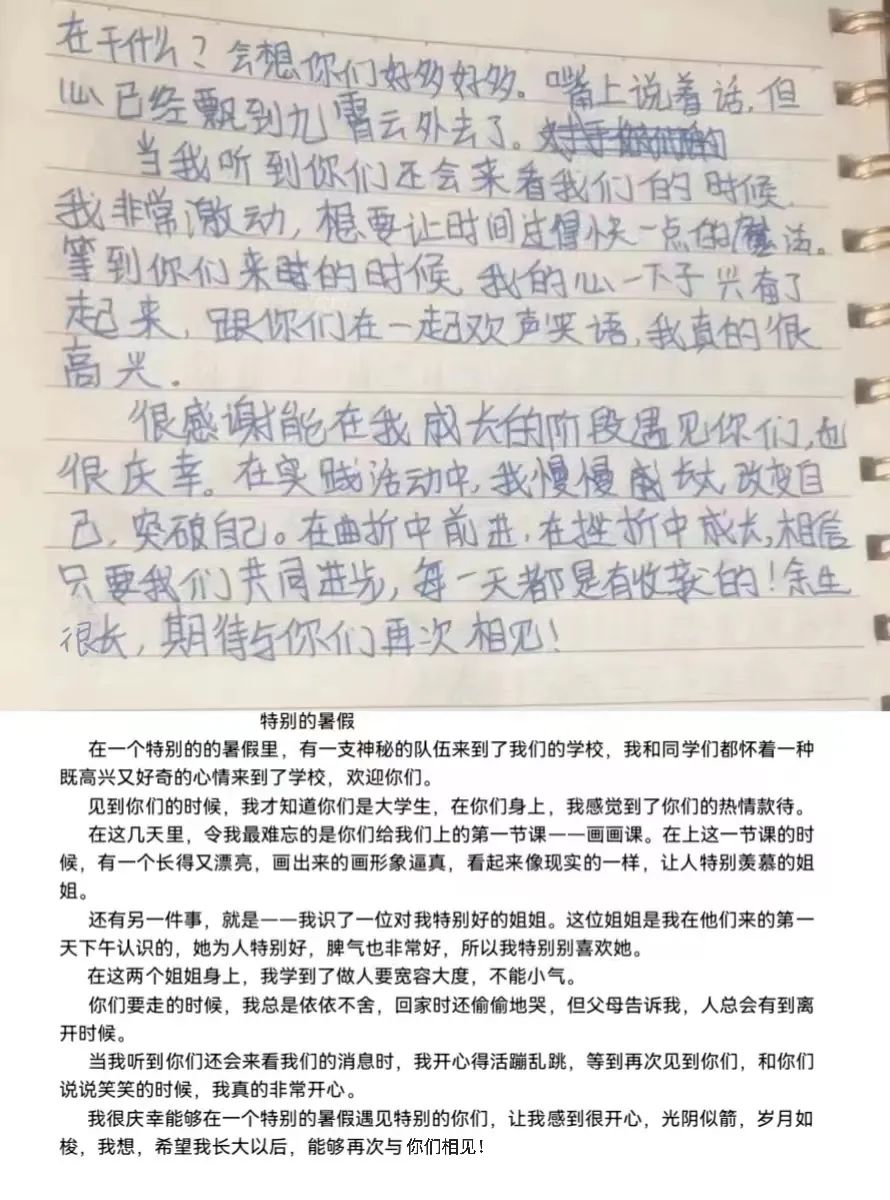 在干什么？会想你们好多好多。嘴上说着话，但
心已经飘到九霄云外去了。
当我听到你们还会来看我们的时候，
我非常激动，想要让时间过得快一点的魔法。
等到你们来时的时候，我的心一下子兴奋了
起来，跟你们在一起欢声笑语，我真的很
高兴。
很感谢能在我成长的阶段遇见你们，也
很庆幸。在实践活动中，我慢慢成长，改变自
己，突破自己。在曲折中前进，在挫折中成长，相信
只要我们共同进步，每一天都是有收获的！余生
很长，期待与你们再次相见！
特别的暑假
在一个特别的的暑假里，有一支神秘的队伍来到了我们的学校，我和同学们都怀着一种
既高兴又好奇的心情来到了学校，欢迎你们。
见到你们的时候，我才知道你们是大学生，在你们身上，我感觉到了你们的热情款待。
在这几天里，令我最难忘的是你们给我们上的第一节课——画画课。在上这一节课的时
候，有一个长得又漂亮，画出来的画形象逼真，看起来像现实的一样，让人特别羡慕的姐
姐。
还有另一件事，就是——我识了一位对我特别好的姐姐。这位姐姐是我在他们来的第一
天下午认识的，她为人特别好，脾气也非常好，所以我特别别喜欢她。
在这两个姐姐身上，我学到了做人要宽容大度，不能小气。
你们要走的时候，我总是依依不舍，回家时还偷偷地哭，但父母告诉我，人总会有到离
开时候。
当我听到你们还会来看我们的消息时，我开心得活蹦乱跳，等到再次见到你们，和你们
说说笑笑的时候，我真的非常开心。
我很庆幸能够在一个特别的暑假遇见特别的你们，让我感到很开心，光阴似箭，岁月如
梭，我想，希望我长大以后，能够再次与你们相见！